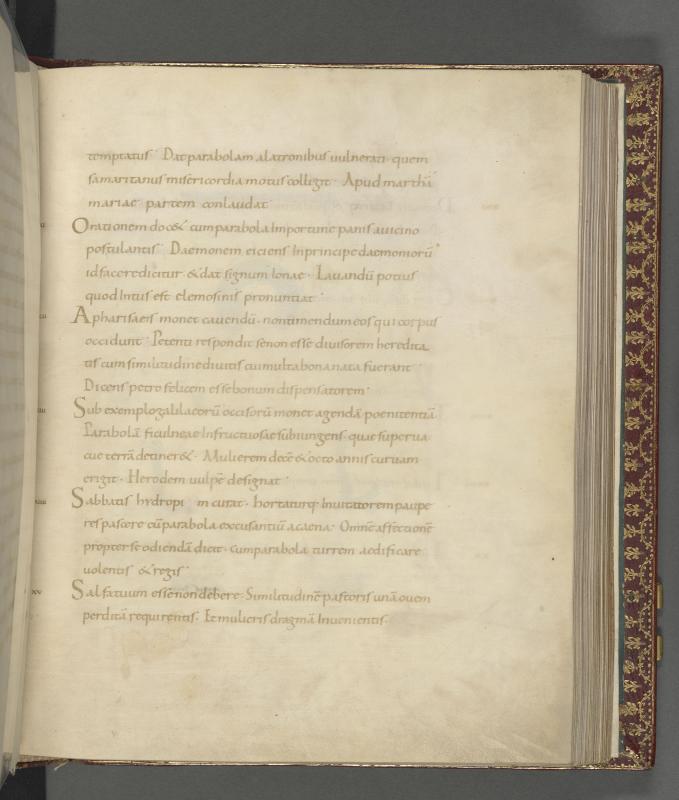 temptatus Dat parabolam a latronibus vulnerati quem
samaritanus misericordia motus colligit · Apud marthā
mariae partem conlaudat
Orationem doc& cum parabola Importune panis a uicino
postulantis Daemonem eiciens In principe daemoniorū
id facere dicitur · & dat signum Ionae · Lauandū potius
quod Intus est elemosinis pronuntiat
A pharisaeis monet cauendū · non timendum eos qui corpus
occidunt · Petenti respondit se non esse diuisorem heredita
tis cum similitudine diuitis cui multa bona nata fuerant
Dicens petro felicem esse bonum dispensatorem ·
Sub exemplo galilaeorū occisorū monet agendā poenitentiā
Parabolā ficulneae Infructuosae subiungens · quae superua
cue terrā detiner& · Mulierem decē & octo annis curuam
erigit · Herodem uulpē designat
Sabbatis hydropi in curat · hortaturq; Inuitatorem paupe
res pascere cū parabola excusantiū a caena · Omnē affectionē
propter se odiendā dicit · cum parabola turrem aedificare
uolentis & regis
XV Sal fatuum esse non debere · Similitudinē pastoris unā ouem
perditā requirentis · Et mulieris dragmā Inuenientis